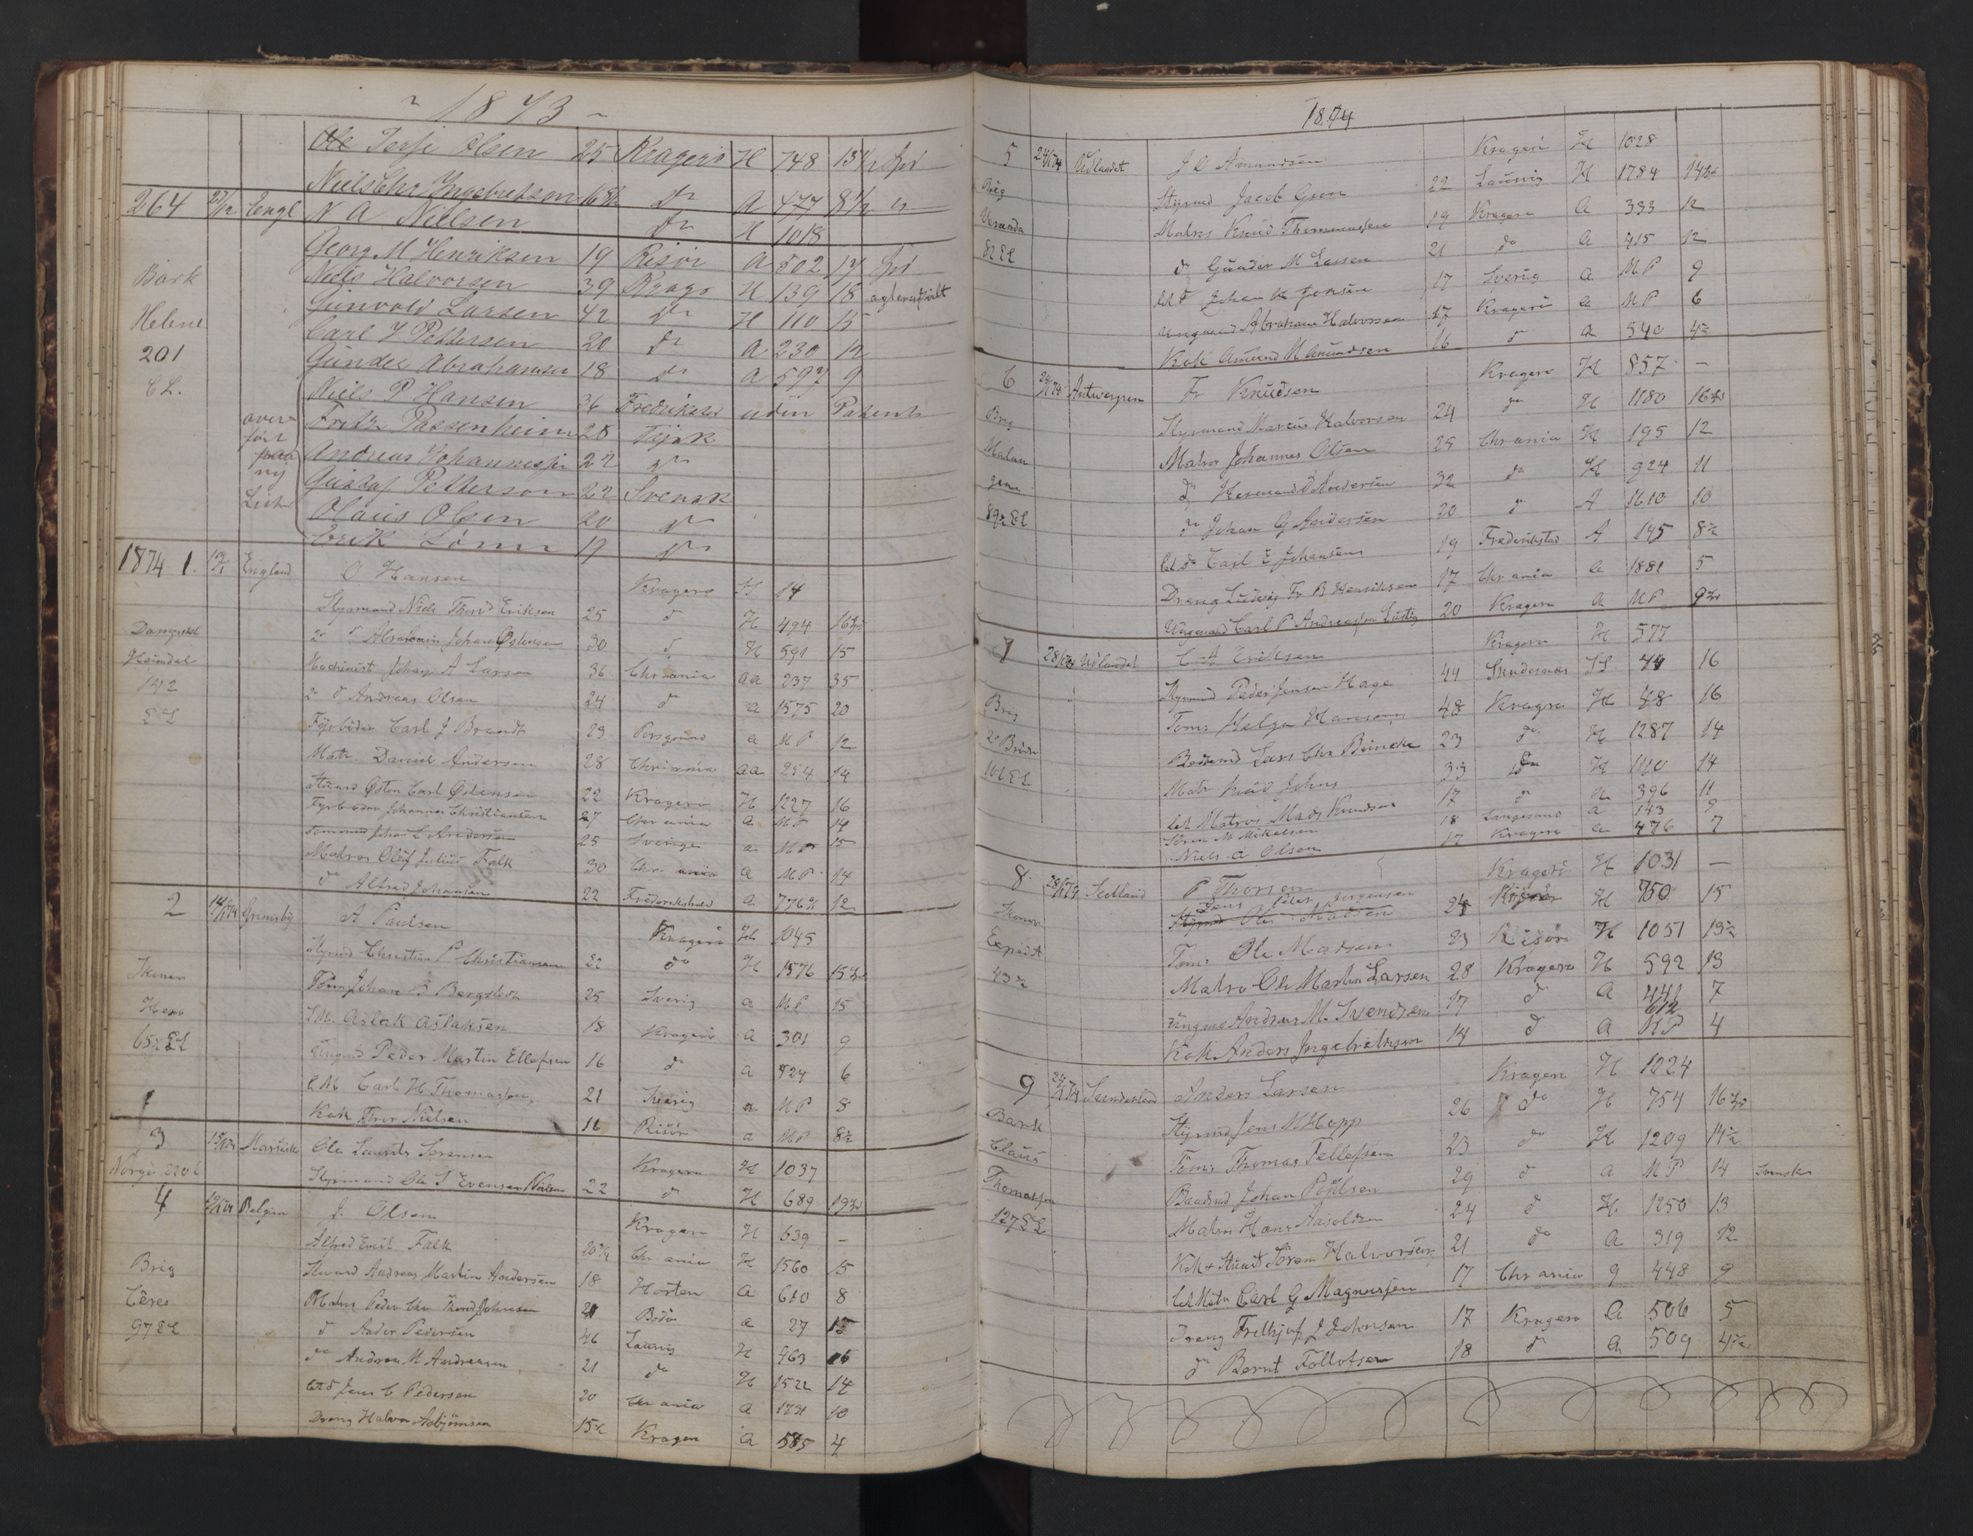 1873
Ole Terje Olsen 25 Kragerö H 748 15½ Spd
Niels Chr Ingebretsen 16½ do A 477 8½ "
264 27/12 Engl N A Nielsen do H 1018
Georg M Henriksen 19 Risör A 502 14 Spd
Niels Halvorsen 39 Kragö H 139 18
Bark Gunvold Larsen 42 do H 110 15
Helene Carl J Pettersen 20 do A 230 12
201 Gunder Abrahamsen 18 do A 597 9
CL. Niels P Hansen 36 Fredrikstad uden Patent
over Fritz Passenheim 28 Tysk
ført Andreas Johannessen 22 do
paa Gustaf Petterson 22 Svensk
ny Olaus Olsen 20 do
Liste Erik Lönn 19 do
1874 1. England O Hansen Kragerö H 14
Styrmand Niels Thord Eriksen 25 d H 494
Dampskb 2 d Abraham Johan Östensen 30 d H 591 15
Heimdal Machinist Johan A Larsen 36 Chrania aa 237 35
142 2 d Andreas Olsen 24 d a 1575 20
Fyrböder Carl J Brandt 23 Porsgrund a MP 12
Matr Daniel Andersen 28 Chrisania aa 254 14
Stuard Östen Carl Östensen 22 Kragerö H 1227 16
Fyrböder Johannes Christiansen 27 Chrania a MP 14
Tömmerm Johan L Andersen 25 Sverige a MP 15
Matros Oluf Julius Falk 30 Chrania a MP 14
do Alfred Johansen 22 Fredrikshald a 776 12
2 14/1 74 Grimsby A Paulsen Kragerö H 1045
Styrmd Christian P Christiansen 22 do H 1576
Tömm Johan B Bengtson 25 Sverig a MP 15
Hero LM Aslak Aslaksen 18 Kragerö A 301 9
65½ CL Ungmd Peder Martin Ellefsen 16 do a 524 6
LM Carl H Thomassen 21 Sverig a MP 8
Kok Fror Nielsen 16 Risör a MP 8½
3 15/1 74 Ole Lauritz Sörensen Kragerö H 1037
Norge Styrmand Ole S Evensen 22 d H 689
4 Belgien J. Olsen Kragerö H 639 –
Alfred Emil Falk Chrania H 1560 5
Brig Stuard Andreas Martin Andersen 18 Horten A 610 8
Ceres Matros Peder Chr Thord Johnsen 21 Bodö a 27 15
97 CL d Ander Pedersen 46 Laurvig H 963 16
do Andreas M Andreasen 21 do H 1522 14
Let d Jens C Pedersen 20 Chrania A 1731 10
Dreng Halvor Asbjörnsen 15½ Kragerö A 585 4
1874
5 24/1 74 Udlandet J C Amundsen Kragerö H 1028
Brig Styrmd Jacob Gron 22 Laurvig H 1784 14½
Veranda Matros Knud Thommassen 19 Kragerö A 383 12
82 CL d Gunder M Larsen 21 do A 415 12
Let d Johan K Jonsen 17 Sverig A MP 9
Ungmand Abraham Halvorsen 17 Kragerö a MP 6
Kok Amund M Amundsen 16 d a 540 4½
6 24/1 74 Antwerpen Fr Knudsen Kragerö H 857 –
Brig Styrmand Marcus Halvorsen 24 do H 1180
Matros Johannes Olsen 25 Chrania H 195 12
d Hermand Andersen 32 do H 924 11
89½ CL do Johan G Andersen 20 d A 1610 10
Let do Carl E Johansen 19 Fredrikstad A 145 8½
Dreng Ludvig Fr B Henriksen 17 Chrania a 1881 5
Ungmand Carl P Andreassen 20 Kragerö a MP
7 28/1 74 Udlandet C A Eriksen Kragerö H 577
Styrmd Peder Jensen Hage 44 Skudesnæs 44 16
Brig Tömr Helge Hansen 48 Kragerö H 48 16
2 Brödre Bödtmd Lars Chr Brincke 23 do H 1287 14
101 CL Matr Knud Johns 33 do H 110 14
Let Matros Mads Knudsen 17 do a 396 11
Sören M Mikelsen 18 Langesund a 143 9
Niels A Olsen 17 Kragerö a 476 7
8 28/1 74 Scotland P Thorsen Kragerö H 1031 –
Styrmd Jens Peter Jörgensen 24 H 750 15
Tömr Ole Madsen 23 Risör H 1051 13½
43½ Matro Ole Martin Larsen 28 Kragerö H 592 13
Ungmd Andreas M. Svendsen 17 d A 441 7
612
Kok Anders Ingebretsen 14 d A MP 4
9 24/1 74 Sunderland Anders Larsen Kragerö H 1024
Bark Styrmd Jens M Hopp 26 do H 754
Claus Tömr Thomas Tellefsen 23 do H 1209 14½
Thomassen Baadsmd Johan Poulsen 29 d a MP 14 Svensk
127 CL Matro Hans Aasoldsen 24 d H 1250 13
Kok & Stuard Sören Halvorsen 21 do A 319 12
Let Matr Carl G Magnussen 17 Chrania 448 9
Dreng Frithjof J Johnsen 17 Kragerö A 506 5
do Bernt Tollofsen 18 d A 509 4½